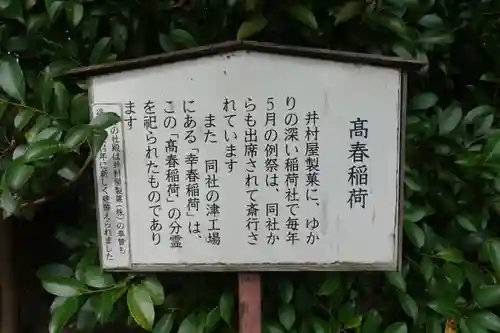 髙春稲荷
井村屋製菓に、ゆか
りの深い稲荷社で毎年
5月の例祭は、同社か
らも出席されて斎行さ
れています
また　同社の津工場
にある「幸春稲荷」は、
この「髙春稲荷」の分霊
を祀られたものであり
ます
の社殿は井村屋製菓(株)の奉賛も
に新しく建替えられ